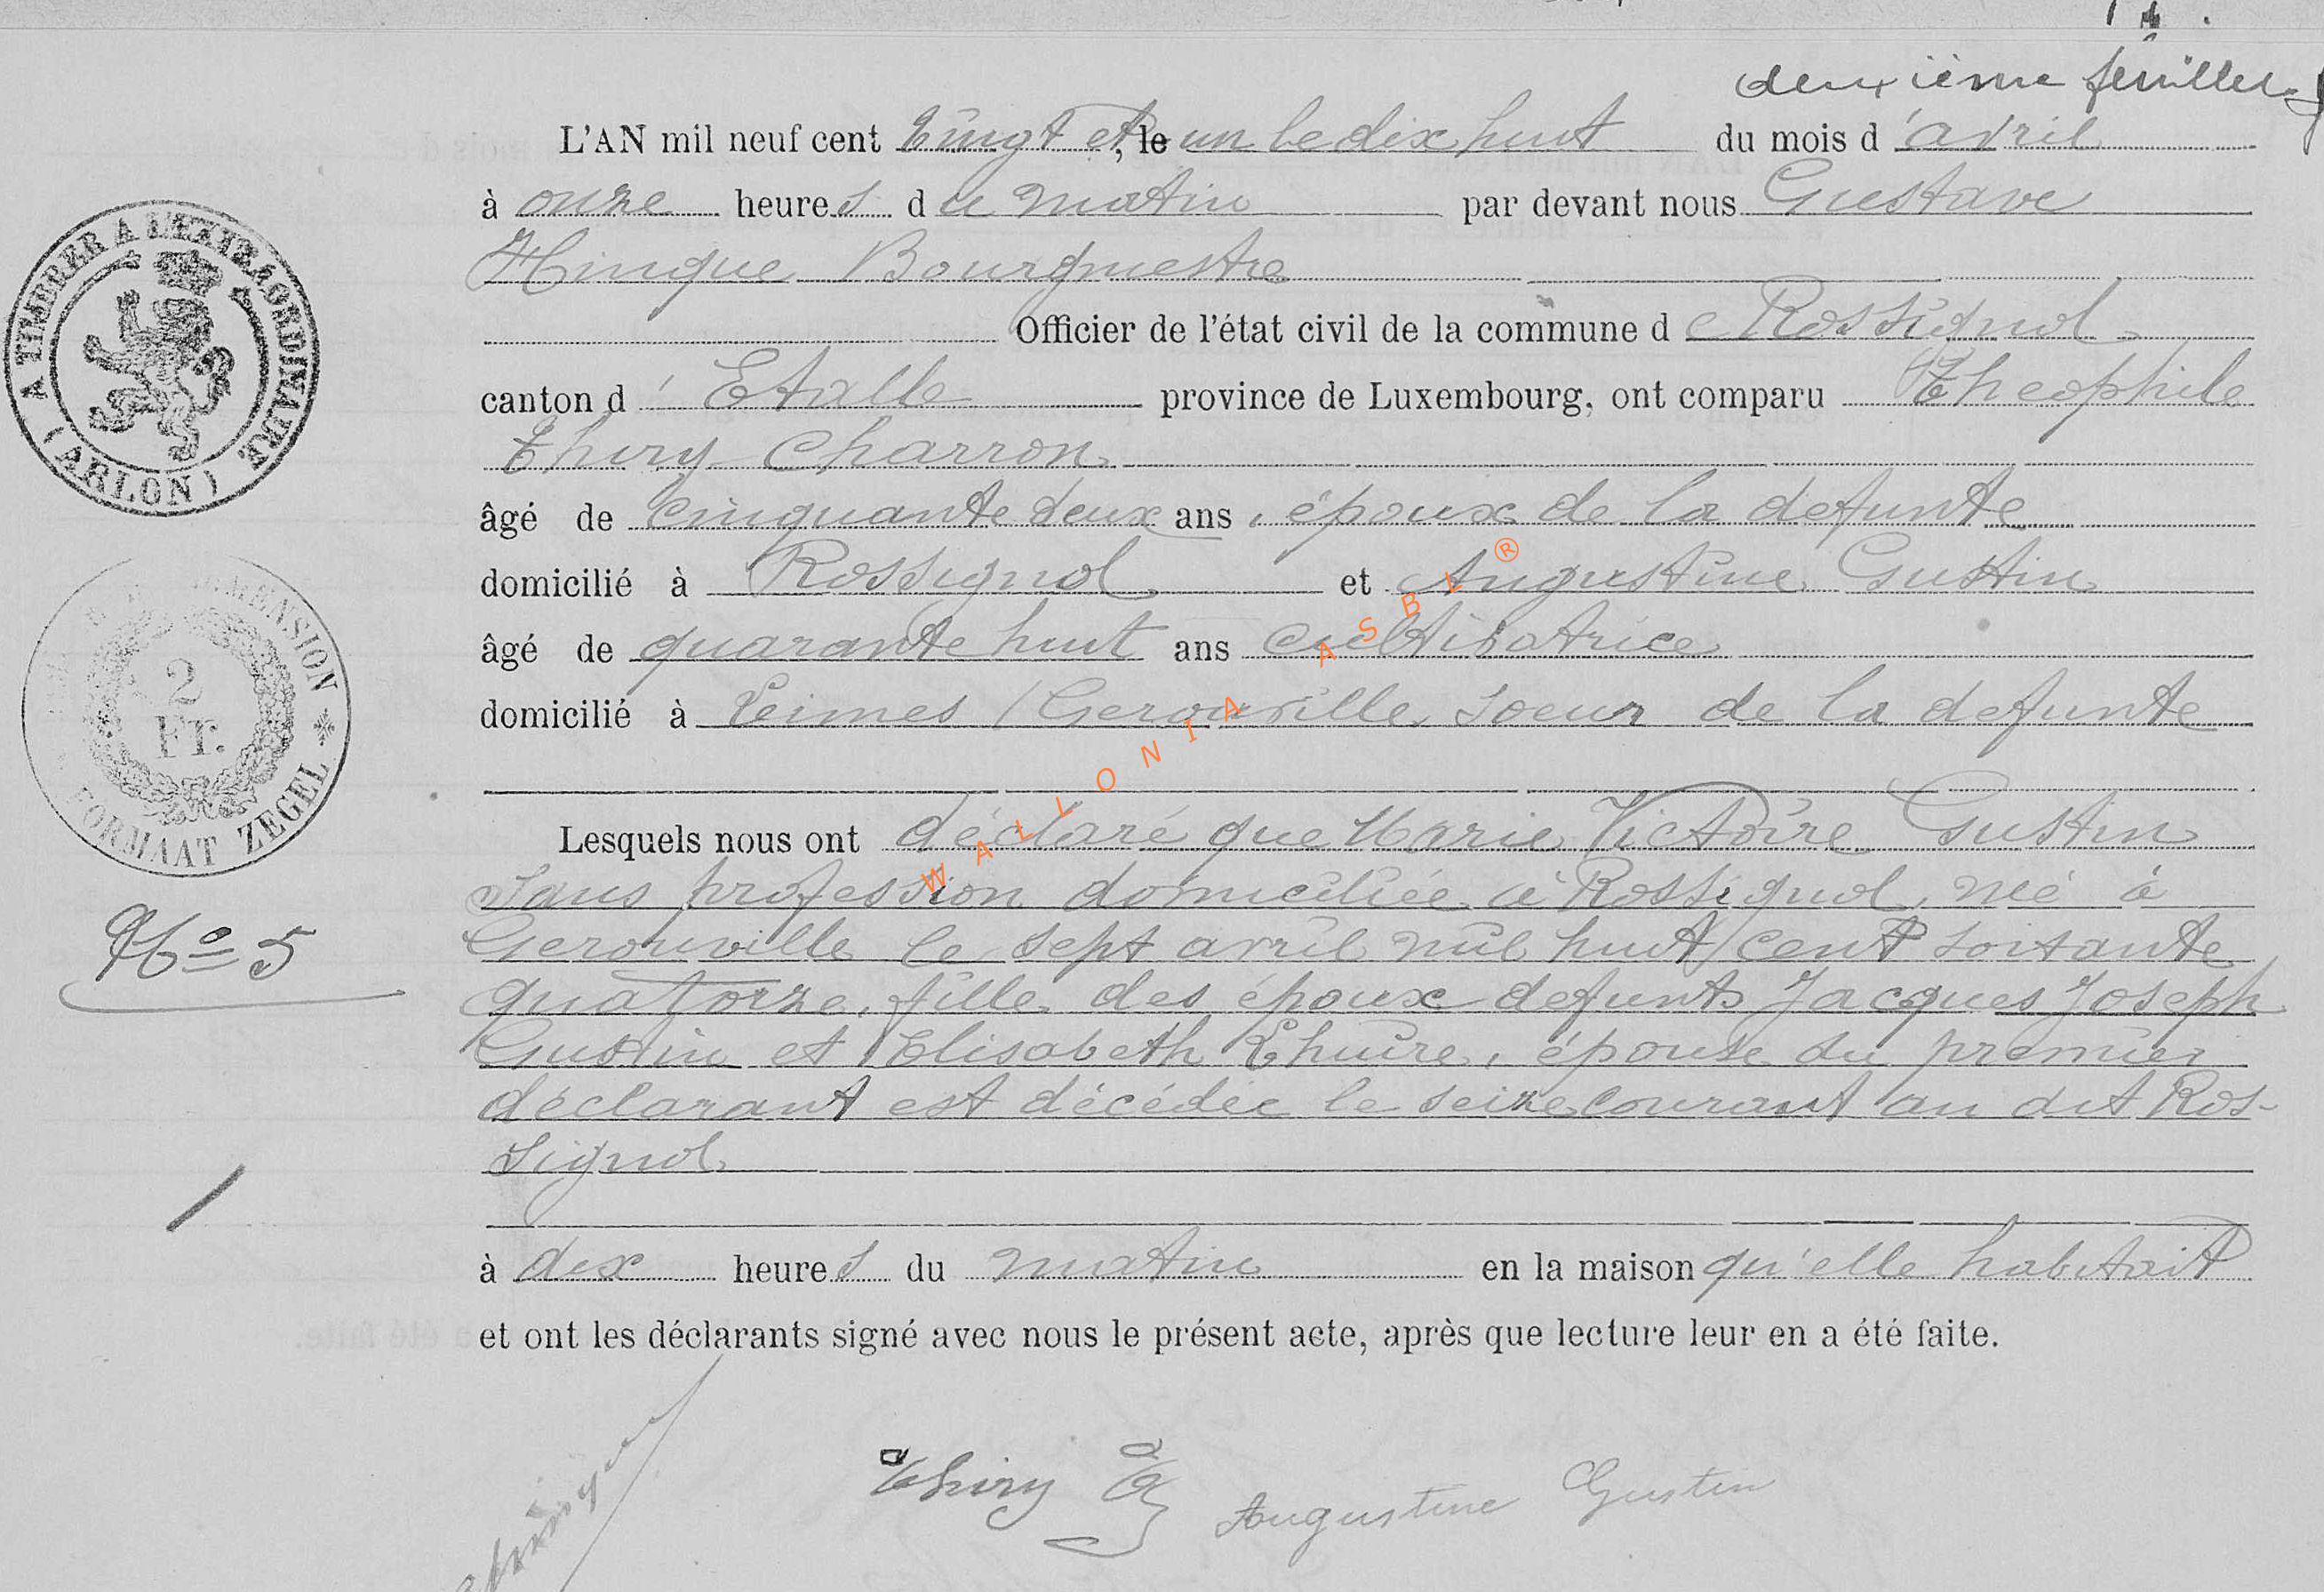 deuxième feuillet
L'AN mil neuf cent vingt et, le un le dix huit du mois d'avril
à onze heures du matin par devant nous Gustave
Hinque Bourgmestre
Officier de l'état civil de la commune de Rossignol
canton d'Etalle province de Luxembourg, ont comparu Theophile
Thiry Charron
âgé de cinquante deux ans, époux de la defunte
domicilié à Rossignol et Augustine Gustin
âgé de quarante huit ans cultivatrice
domicilié à Limes / Gerouville soeur de la defunte
Lesquels nous ont déclaré que Marie Victoire Gustin
sans profession domiciliée à Rossignol, née à
Gerouville le sept avril mil huit cent soixante
quatorze, fille des époux defunts Jacques Joseph
Gustin et Elisabeth Thuire, épouse du premier
déclarant est décédée le seize courant au dit Ros-
signol
à dix heures du matin en la maison qu'elle habitait
et ont les déclarants signé avec nous le présent acte, après que lecture leur en a été faite.
Thiry
Augustine Gustin
A TIMBRER A L'EXTRAORDINAIRE
(ARLON)
DIMENSION
2
Fr.
FORMAAT ZEGEL
No 5
WALLONIA ASBL ®